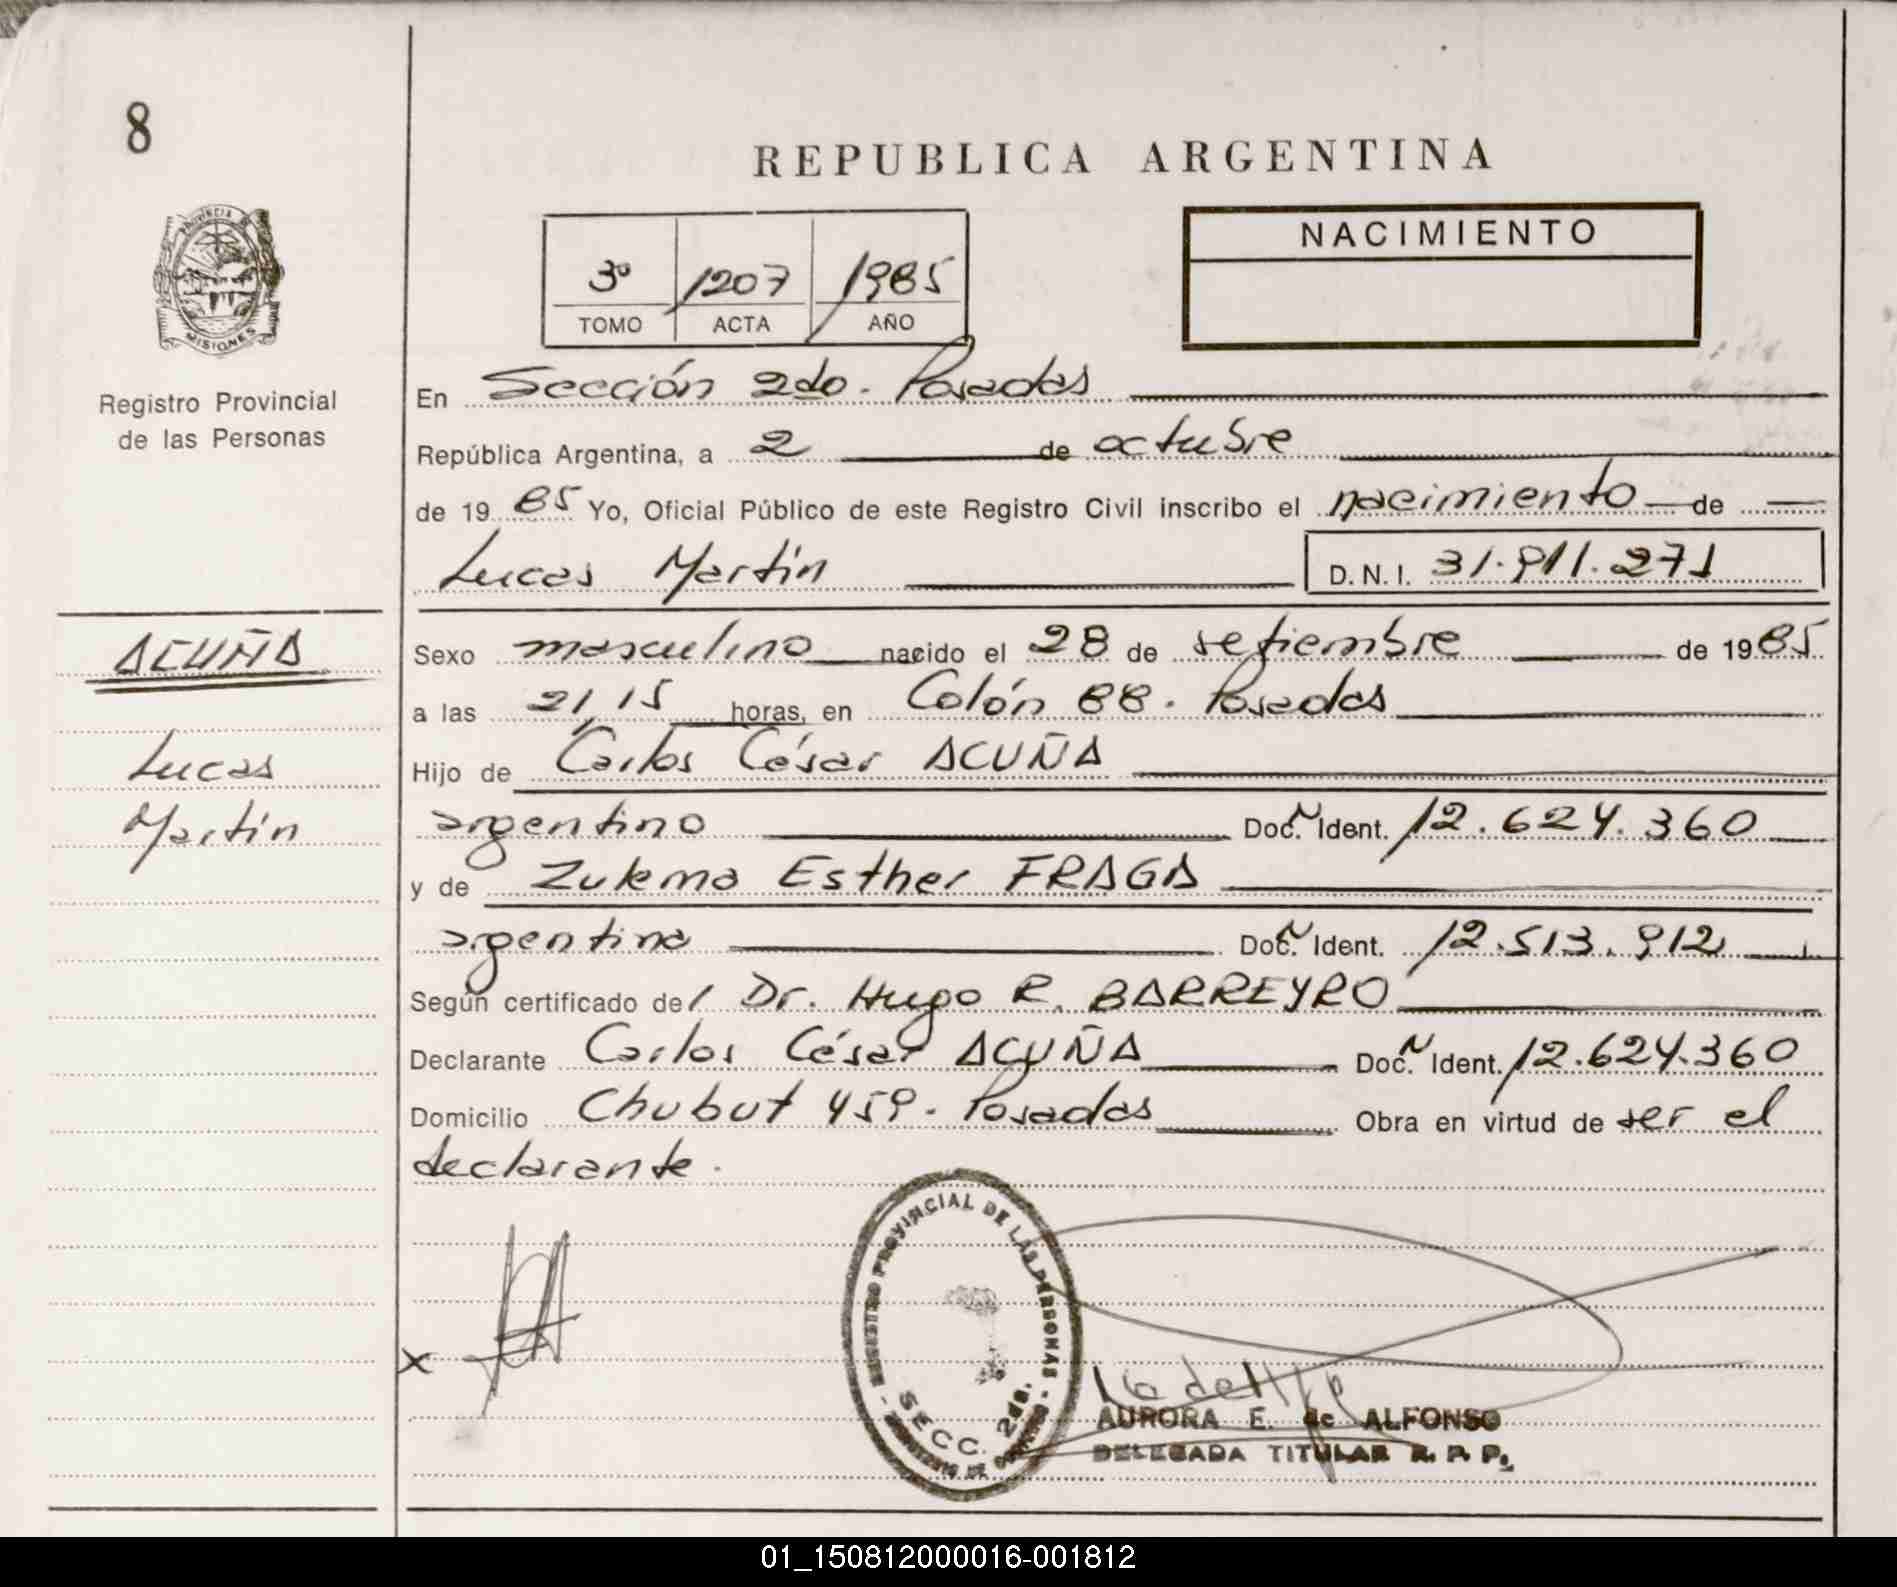 8
REPUBLICA ARGENTINA
PROVINCIA DE
MISIONES
Registro Provincial
de las Personas
3º 1207 1985
TOMO ACTA AÑO
NACIMIENTO
En Sección 2do. Posadas
República Argentina, a 2 de octubre
de 1985 Yo, Oficial Público de este Registro Civil inscribo el nacimiento de
Lucas Martín D.N.I. 31.911.271
ACUÑA
Lucas
Martín
Sexo masculino nacido el 28 de setiembre de 1985
a las 21,15 horas, en Colón 88. Posadas
Hijo de Carlos César ACUÑA
argentino Doc. Ident. 12.624.360
y de Zulema Esther FRAGA
argentina Doc. Ident. 12.513.912
Según certificado del Dr. Hugo R. BARREYRO
Declarante Carlos César ACUÑA Doc. Ident. 12.624.360
Domicilio Chubut 459. Posadas Obra en virtud de ser el
declarante.
REGISTRO PROVINCIAL DE LAS PERSONAS
SECC. 2da.
MINISTERIO DE GOBIERNO
x
AURORA E. de ALFONSO
DELEGADA TITULAR R. P. P.
01_150812000016-001812